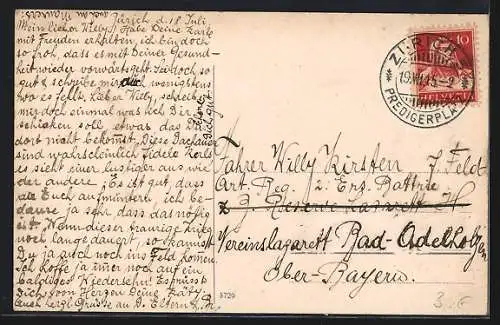 Zürich d. 18 Juli.
Mein lieber Willy! Habe Deine Karte
mit Freuden erhalten, ich bin doch
so froh, dass es mit Deiner Gesund-
heit wieder vorwärts geht. Sei doch so
gut & schreibe mir auch wenigstens
wo es fehlt. Lieber Willy, schreib
mir doch einmal was ich Dir
schicken soll etwas das Du
dort nicht bekommst. Diese Dachauer
sind wahrscheinlich fidele Karls
es sieht einer lustiger aus wie
der andere, ja es ist gut, dass
sie Euch aufmuntern, ich be-
daure ja sehr dass das nötig
ist. Wenn dieser traurige Krieg
noch lange dauert, so kannst
Du ja auch noch ins Feld kommen.
Ich hoffe ja immer noch auf ein
baldiges Wiedersehn! Es grüsst
Dich vom Herzen Deine
auch herzl. Grüsse an D. Eltern
10
HELVETIA
PREDIGERPLATZ
Fahrer Willy Kirsten 7. Feld
Art. Reg. 2. Ers. Battrie
Z. Reserve Lazarett H
Vereinslazarett Bad-Adelholzen
Ober-Bayern.
3729